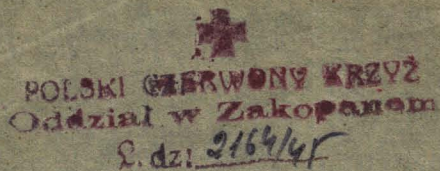 POLSKI CZERWONY KRZYŻ
Oddział w Zakopanem
L. dz: 2164/45